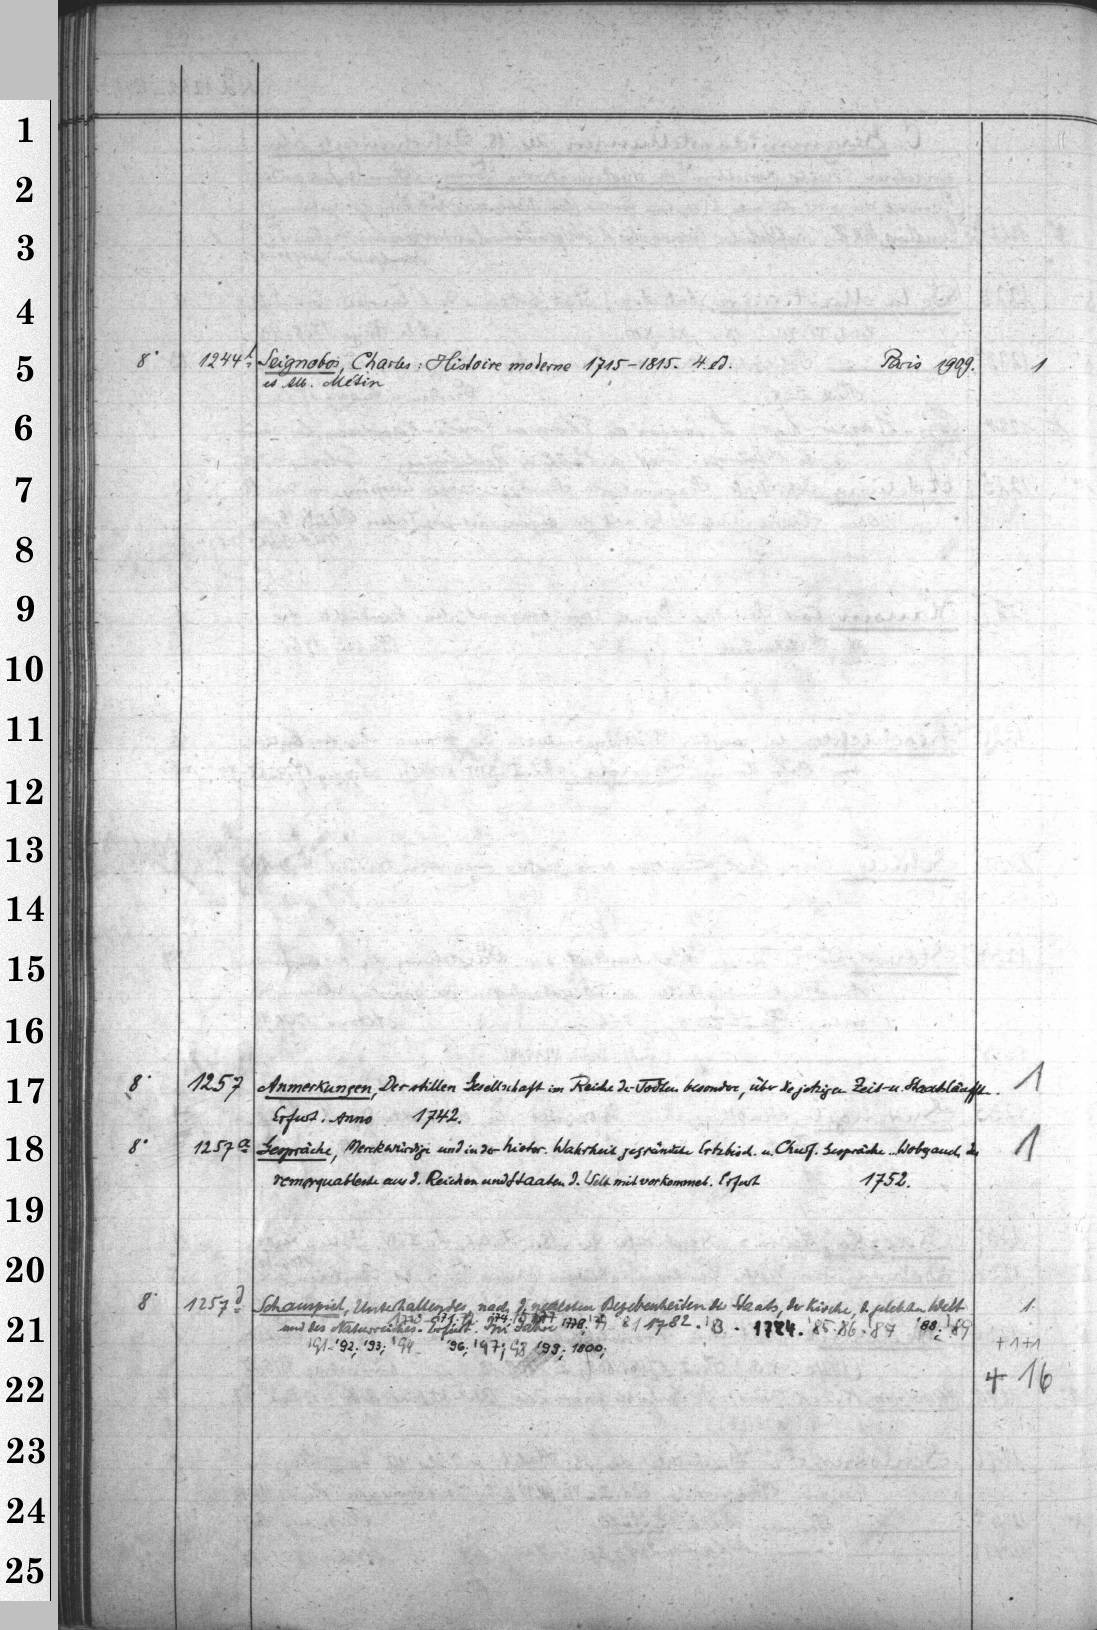 1
2
3
4
5
8° 1244 Seignobos, Charles: Histoire moderne 1715-1815. 4. ed. Paris 1909. 1
et Alb. Métin
6
7
8
9
10
11
12
13
14
15
16
17
8° 1257 Anmerkungen, Der stillen Gesellschaft im Reiche der Todten besondre, über die jetzigen Zeit- u. Staatsläuffte. 1
Erfurt. Anno 1742.
18
8° 1257a Gespräche, Merckwürdige und in der histor. Wahrheit gegründete Ertzbisch. u. Churf. Gespräche .. Wobey auch das 1
remarquableste aus d. Reichen und Staaten d. Welt mit vorkommet. Erfurt 1752.
19
20
8° 1257d Schauspiel, Unterhaltendes, nach d. neuesten Begebenheiten des Staats, der Kirche, d. gelehrten Welt 1.
21
und des Naturreiches. Erfurt. Im Jahre 1778, '79 '81 1782. '83. 1784. '85. 86. '87 '88; '89
'91- '92; '93; '94 '96; '97; 98 '99; 1800; +1+1
22
+ 16
23
24
25